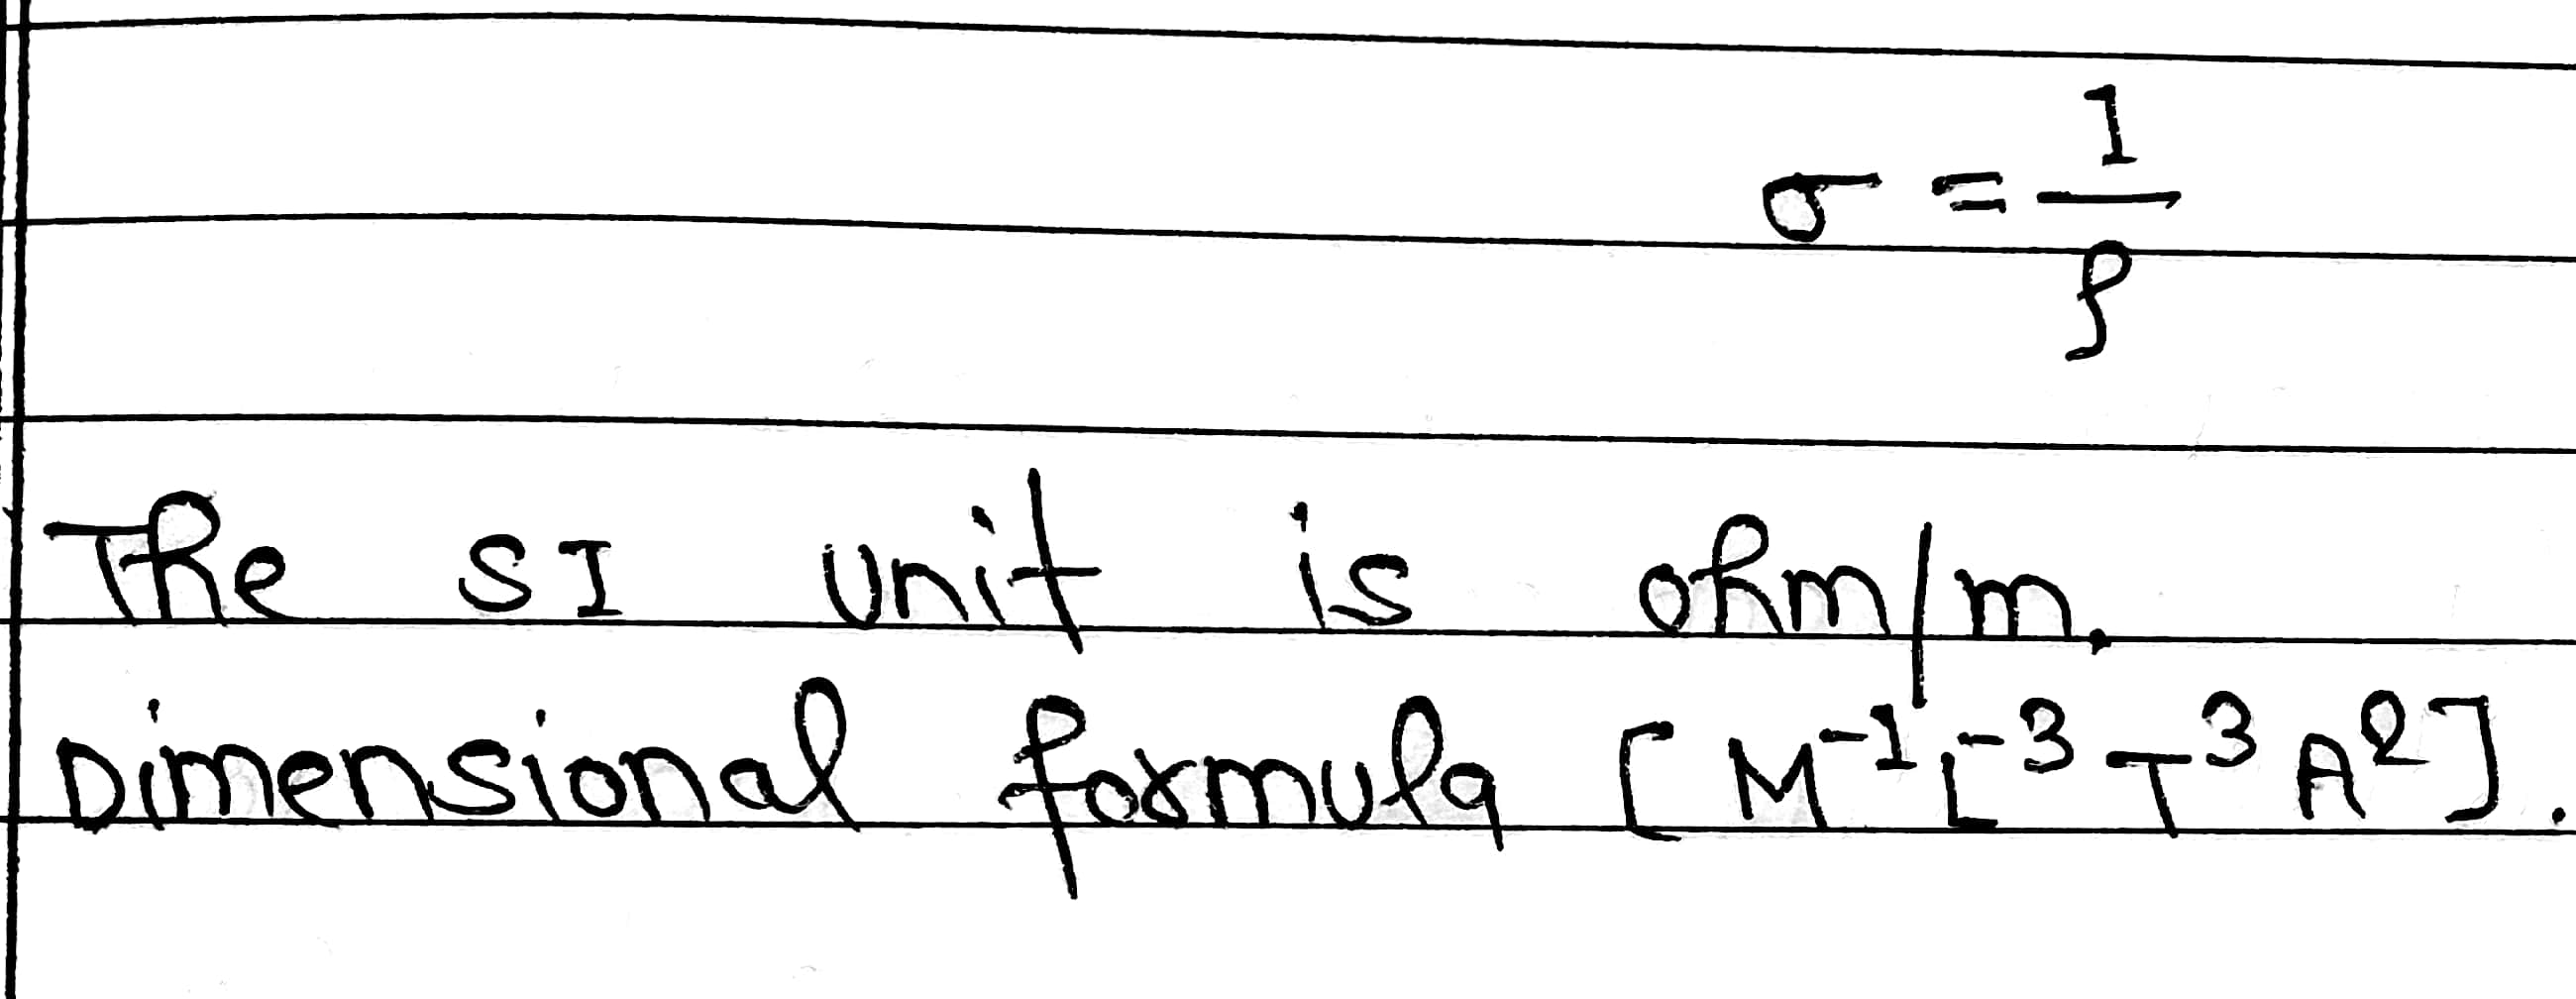 σ = 1/ρ
The SI unit is ohm/m.
Dimensional formula [M⁻¹L⁻³T³A²].